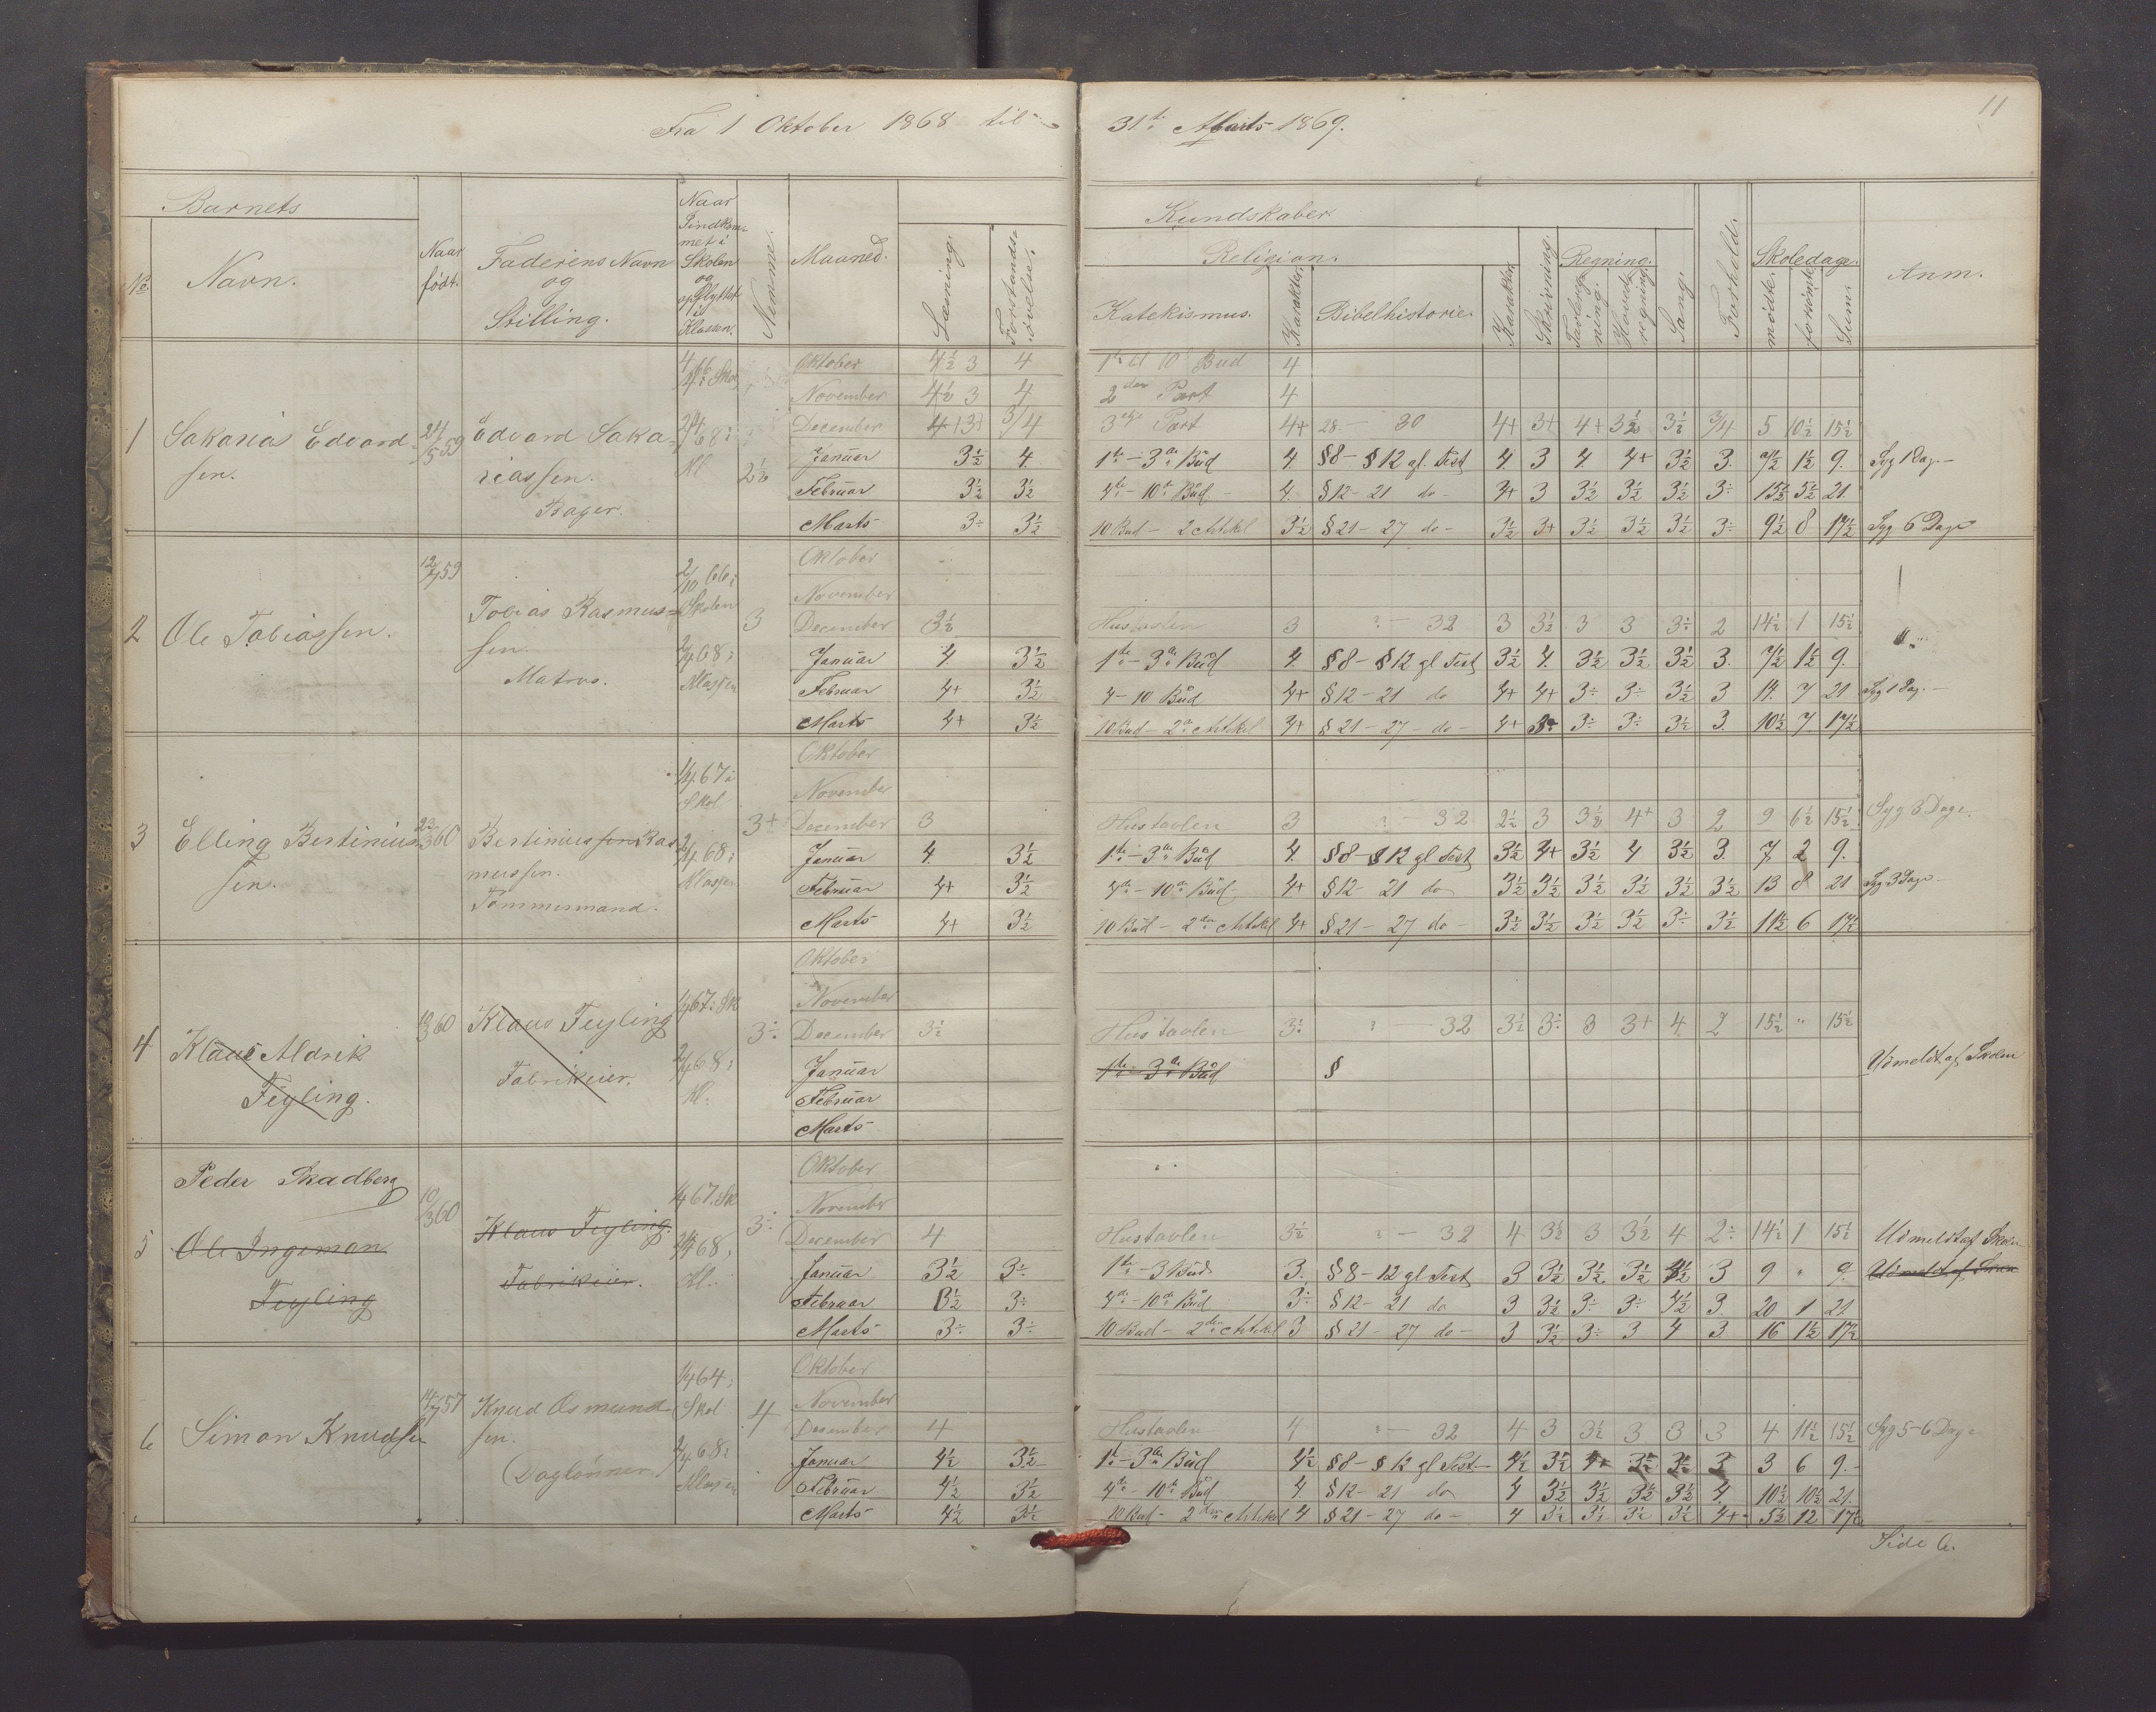 11
Fra 1 Oktober 1868 til 31te Marts 1869.
Barnets
No. Navn.
Naar født.
Faderens Navn og Stilling.
Naar Indkommet i Skolen og opflyttet i Klassen.
Nemme.
Maaned.
Læsning.
Forstandsøvelse.
Kundskaber.
Religion.
Katekismus. Karakter. Bibelhistorie. Karakter.
Skrivning.
Regning.
Tavleregning. Hovedregning.
Sang.
Forhold.
Skoledage.
mødte. forsømte. Sum.
Anm.
1 Sakarias Edvardsen.
24/5 59
Edvard Sakariassen. Bager.
2½
Oktober 4½ 3 4 1te til 10 Bud 4
November 4½ 3 4 2den Part 4
December 3/4 3die Part 4+ 28 – 30 4+ 3+ 4+ 3½ 3½ 3/4 5 10½ 15½
Januar 3½ 4. 1te – 3die Bud 4. §8 – §12 gl. Test 4. 3 4. 4+ 3½ 3. 7½ 1½ 9. Syg 1 Dag. –
Februar 3½ 3½ 4de – 10de Bud – 4. §12 – 21 do – 4+ 3 3½ 3½ 3½ 3÷ 15½ 5½ 21.
Marts 3÷ 3½ 10 Bud – 2 Artikel 3½ §21 – 27 do – 3½ 3+ 3½ 3½ 3½ 3÷ 9½ 8 17½ Syg 6 Dage
2 Ole Tobiassen.
12/7 59
Tobias Rasmussen. Matros.
2/10 66 i Skolen
2/4 68 i Klassen
3
Oktober
November
December 3½ Hustavlen 3 – 32 3 3½ 3 3 3÷ 2 14½ 1 15½
Januar 4. 3½ 1te – 3die Bud 4. §8 – §12 gl Test 3½ 4. 3½ 3½ 3½ 3. 7½ 1½ 9.
Februar 4+ 3½ 4 – 10 Bud 4+ §12 – 21 do 4+ 4+ 3÷ 3÷ 3½ 3 14. 7 21 Syg 1 Dag. –
Marts 4+ 3½ 10 Bud – 2 Artikel 4+ §21 – 27 – do – 4+ 3+ 3÷ 3÷ 3½ 3. 10½ 7 17½
3 Elling Bertiniussen.
Bertinius Rasmussen. Tømmermand.
1/4 67 i Skol
2/4 68 i Klassen
3+
Oktober
November
December 3 Hustavlen 3 – 32 2½ 3 3½ 4+ 3 2 9 6½ 15½ Syg 3 Dage.
Januar 4 3½ 1te – 3die Bud 4. §8 – §12 gl Test 3½ 4+ 3½ 4 3½ 3. 7 2 9.
Februar 4+ 3½ 4de – 10de Bud 4+ §12 – 21 do 3½ 3½ 3½ 3½ 3½ 3½ 13 8 21 Syg 3 Dage
Marts 4+ 3½ 10 Bud – 2den Artikel 4+ §21 – 27 do – 3½ 3½ 3½ 3½ 3÷ 3½ 11½ 6 17½
4 Klaus Aldrik Feyling.
Klaus Feyling Fabrikeier.
1/4 67 i Sk
2/4 68 i Kl.
3÷
Oktober
November
December 3½ Hustavlen 3÷ – 32 3½ 3÷ 3 3+ 4 2 15½ " 15½
Januar 1te – 3die Bud §
Februar
Marts
Udmeldt af Skolen
Peder Skadberg
5 Ole Ingeman Feyling
10/3 60
Klaus Feyling. Fabrikeier.
1/4 67. Sk
68 i Kl.
3÷
Oktober
November
December 4 Hustavlen 3½ – 32 4 3½ 3 3½ 4 2÷ 14½ 1 15½ Udmeldt af Skolen
Januar 3½ 3÷ 1te – 3 Bud 3. §8 – 12 gl Test 3 3½ 3½ 3½ 4½ 3 9 " 9. Udmeldt af Skolen
Februar 3½ 3÷ 4de – 10de Bud 3÷ §12 – 21 do 3 3½ 3÷ 3÷ 4½ 3. 20 1 21
Marts 3÷ 3÷ 10 Bud – 2den Artikel 3 §21 – 27 do – 3 3½ 3÷ 3 4 3. 16 1½ 17½
6 Simon Knudsen
14/7 57
Knud Osmundsen. Dagлønner.
1/4 64 i Skol
2/4 68 i Klassen
4
Oktober
November
December 4 Hustavlen 4 – 32 4 3 3½ 3 3 3 4 11½ 15½ Syg 5-6 Dage
Januar 4½ 3½ 1te – 3die Bud 4½ §8 – §12 gl Test. – 4½ 3½ 4+ 3½ 3½ 3 3 6 9. –
Februar 4½ 3½ 4de – 10de Bud 4 §12 – 21 do 4 3½ 3½ 3½ 3½ 4. 10½ 10½ 21.
Marts 4½ 3½ 10 Bud – 2den Artikel 4 §21 – 27 do – 4 3½ 3½ 3½ 3½ 4+ 5½ 12 17½
Side 6.